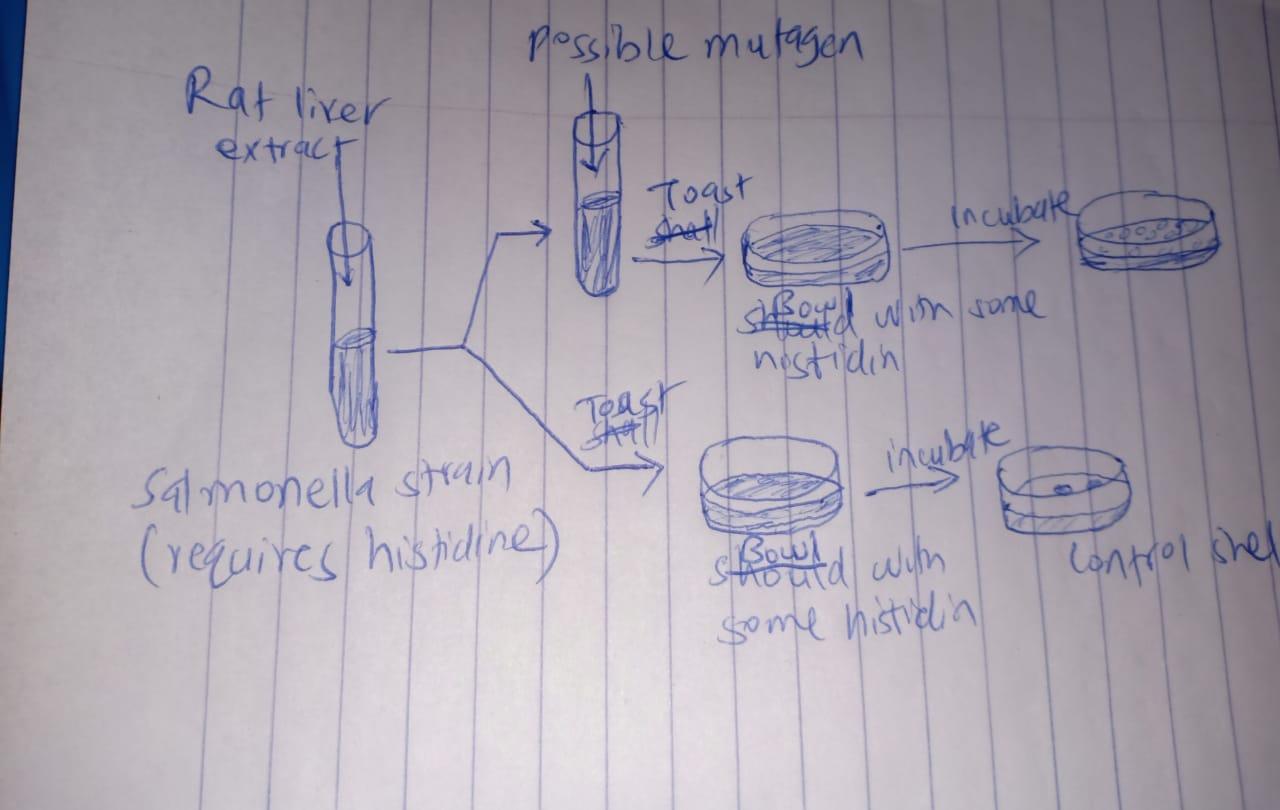 possible mutagen
Rat liver
extract
Toast
incubate
Bowl with some
histidin
Toast
incubate
Salmonella strain
(requires histidine)
Bowl with
some histidin
control shel